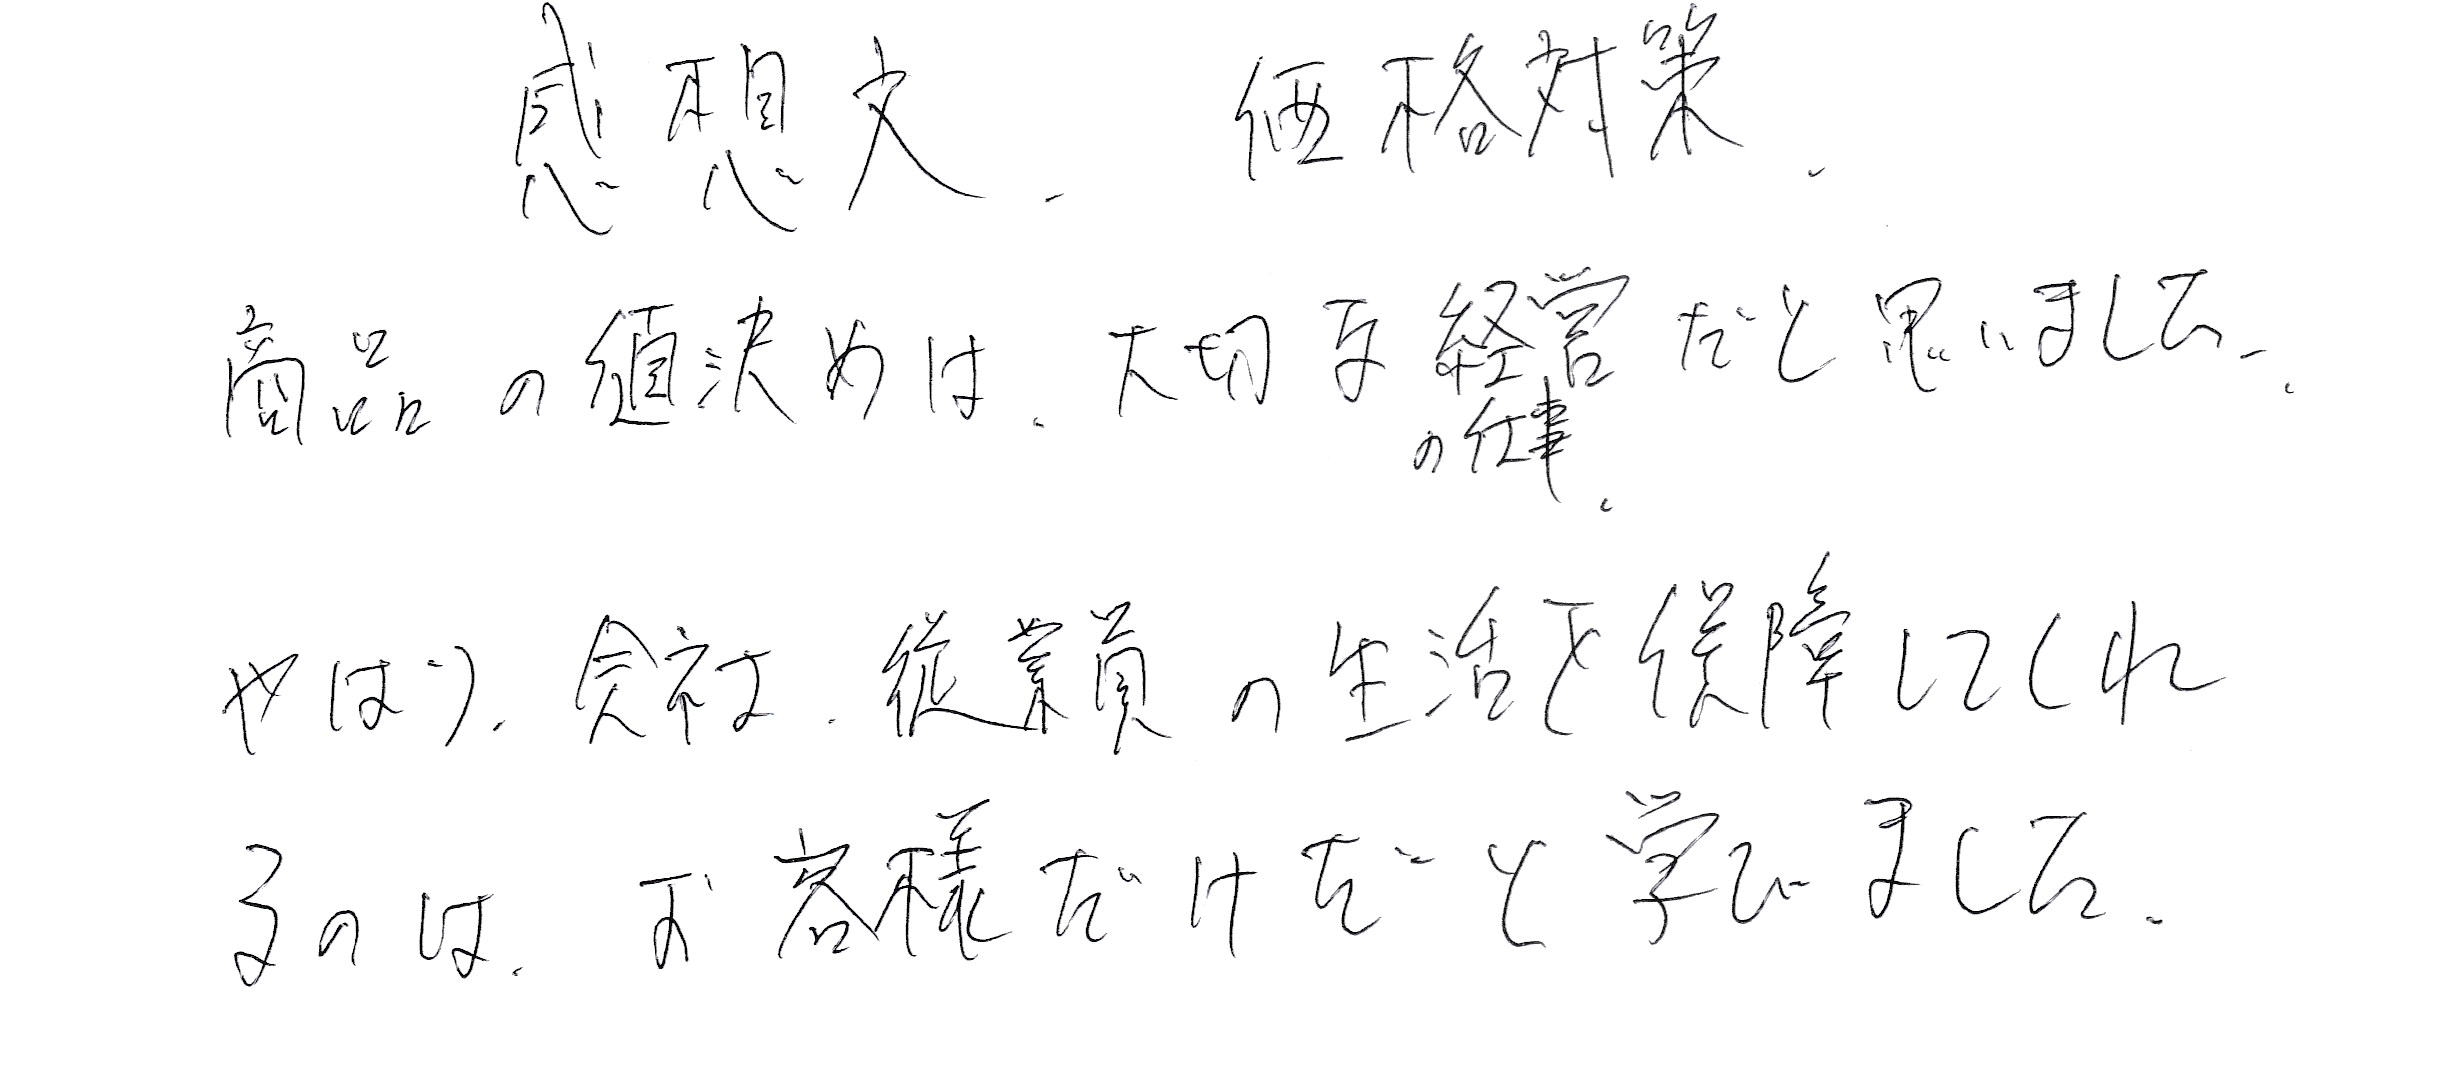 感想文、 価格対策、
商品の値決めは、大切な経営だと思いました。
の仕事、
やはり、会社は、従業員の生活を保障してくれ
るのは、お客様だけだと学びました。